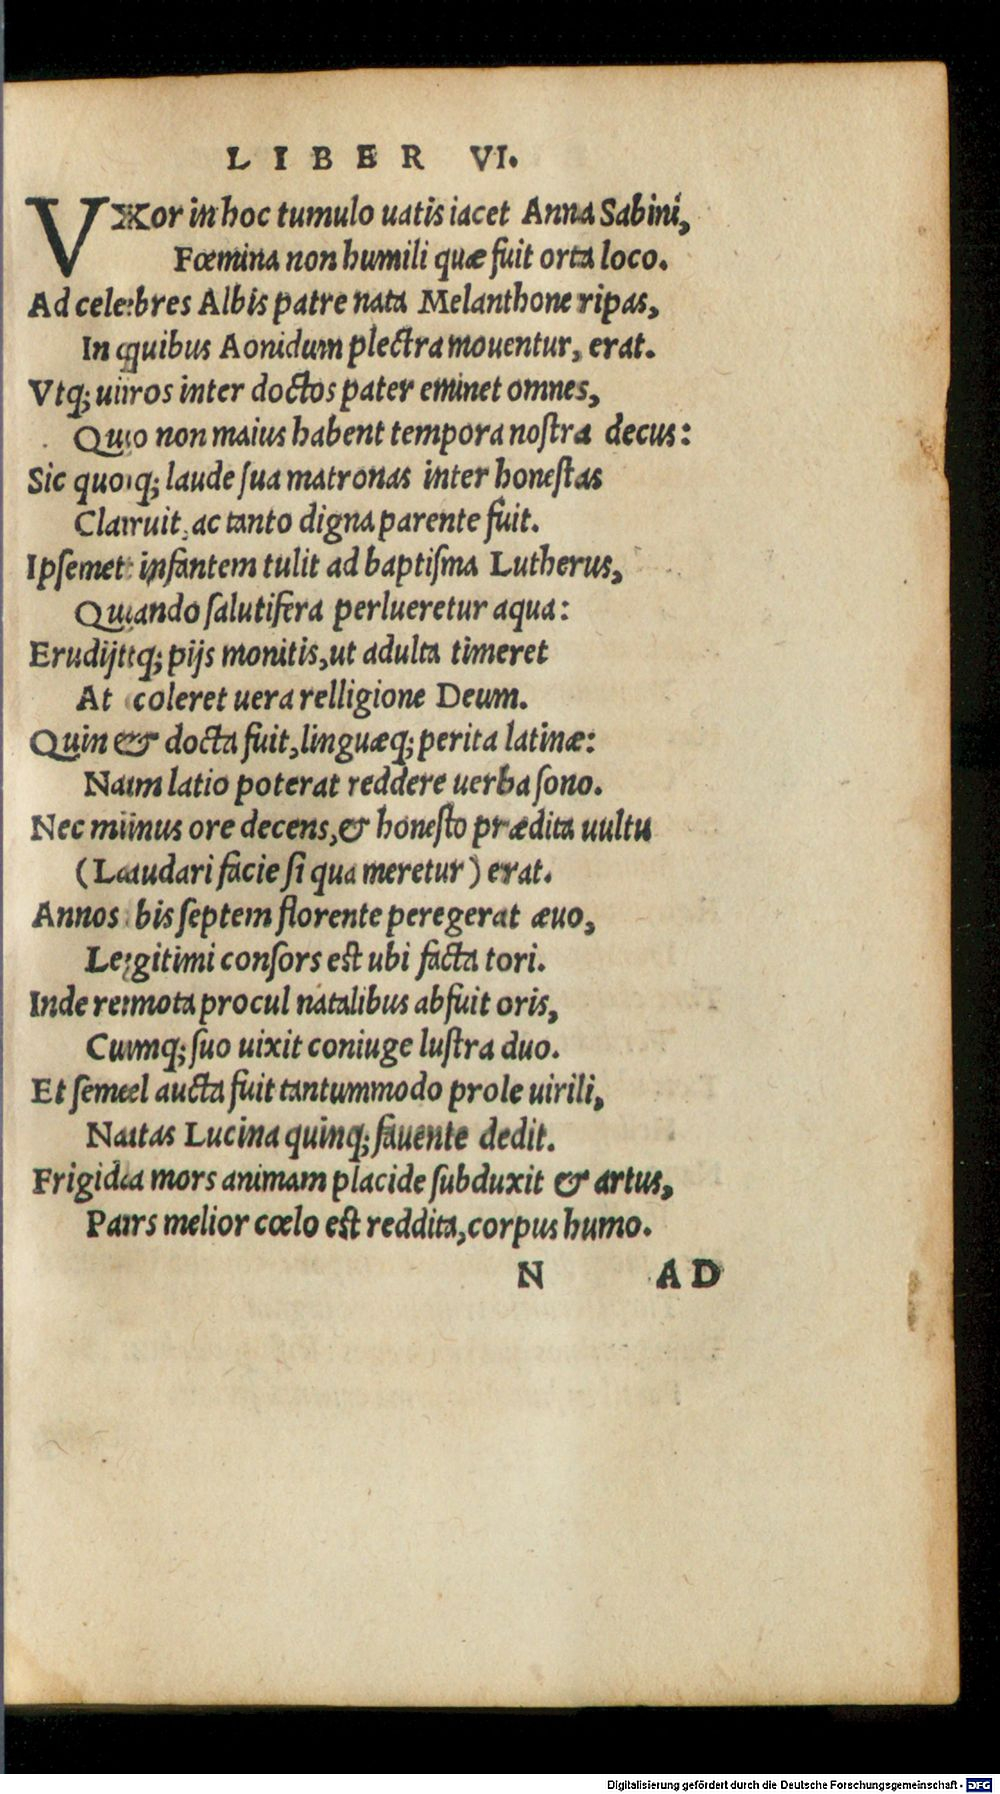 LIBER VI.
VXor in hoc tumulo uatis iacet Anna Sabini,
Fœmina non humili quæ fuit orta loco.
Ad celebres Albis patre nata Melanthone ripas,
In quibus Aonidum plectra mouentur, erat.
Vtq; uiros inter doctos pater eminet omnes,
Quo non maius habent tempora nostra decus:
Sic quoq; laude sua matronas inter honestas
Claruit, ac tanto digna parente fuit.
Ipsemet infantem tulit ad baptisma Lutherus,
Quando salutifera perlueretur aqua:
Erudijtq; pijs monitis, ut adulta timeret
At coleret uera relligione Deum.
Quin & docta fuit, linguæq; perita latinæ:
Nam latio poterat reddere uerba sono.
Nec minus ore decens, & honesto prædita uultu
(Laudari facie si qua meretur) erat.
Annos bis septem florente peregerat æuo,
Legitimi consors est ubi facta tori.
Inde remota procul natalibus abfuit oris,
Cumq; suo uixit coniuge lustra duo.
Et semel aucta fuit tantummodo prole uirili,
Natas Lucina quinq; fauente dedit.
Frigida mors animam placide subduxit & artus,
Pars melior cœlo est reddita, corpus humo.
N AD
Digitalisierung gefördert durch die Deutsche Forschungsgemeinschaft - DFG